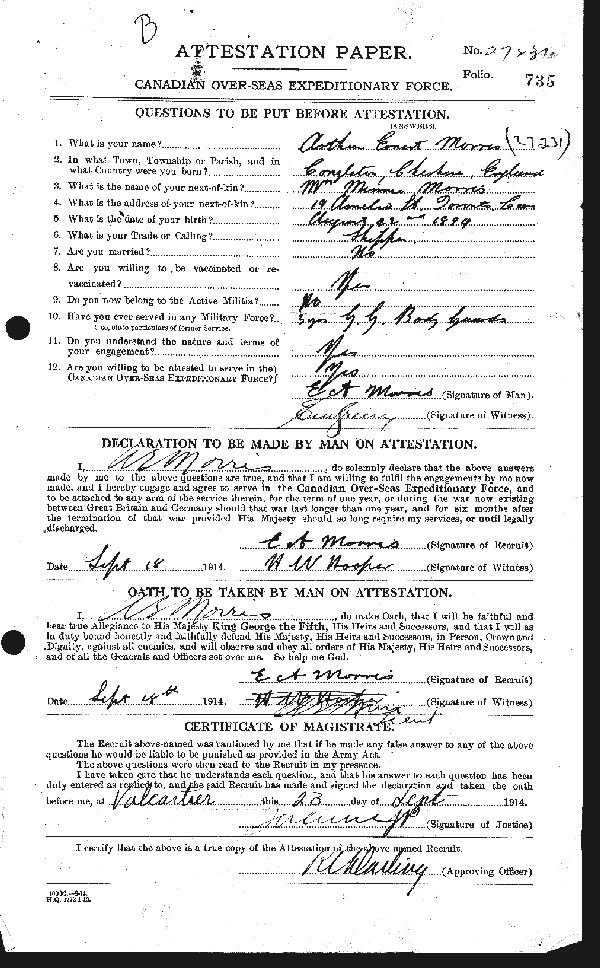 B
ATTESTATION PAPER.
No. 27231
Folio. 735
CANADIAN OVER-SEAS EXPEDITIONARY FORCE.
QUESTIONS TO BE PUT BEFORE ATTESTATION.
(ANSWERS).
1. What is your name? Arthur Ernest Morris (27231)
2. In what Town, Township or Parish, and in
what Country were you born? Congleton, Cheshire, England
3. What is the name of your next-of-kin? Mrs Minnie Morris
4. What is the address of your next-of-kin? 19 Amelia St. Toronto Can
5. What is the date of your birth? August 22nd 1894
6. What is your Trade or Calling? Shipper
7. Are you married? No
8. Are you willing to be vaccinated or re-
vaccinated? Yes
9. Do you now belong to the Active Militia? No
10. Have you ever served in any Military Force? G. G. Body Guards
If so, state particulars of former Service.
11. Do you understand the nature and terms of
your engagement? Yes
12. Are you willing to be attested to serve in the Yes
CANADIAN OVER-SEAS EXPEDITIONARY FORCE?
E A Morris (Signature of Man).
(Signature of Witness).
DECLARATION TO BE MADE BY MAN ON ATTESTATION.
I, A E Morris, do solemnly declare that the above answers
made by me to the above questions are true, and that I am willing to fulfil the engagements by me now
made, and I hereby engage and agree to serve in the Canadian Over-Seas Expeditionary Force, and
to be attached to any arm of the service therein, for the term of one year, or during the war now existing
between Great Britain and Germany should that war last longer than one year, and for six months after
the termination of that war provided His Majesty should so long require my services, or until legally
discharged.
E A Morris (Signature of Recruit)
Date Sept 18 1914. H W Hooper (Signature of Witness)
OATH TO BE TAKEN BY MAN ON ATTESTATION.
I, A E Morris, do make Oath, that I will be faithful and
bear true Allegiance to His Majesty King George the Fifth, His Heirs and Successors, and that I will as
in duty bound honestly and faithfully defend His Majesty, His Heirs and Successors, in Person, Crown and
Dignity, against all enemies, and will observe and obey all orders of His Majesty, His Heirs and Successors,
and of all the Generals and Officers set over me. So help me God.
E A Morris (Signature of Recruit)
Date Sept 18th 1914. (Signature of Witness)
CERTIFICATE OF MAGISTRATE.
The Recruit above-named was cautioned by me that if he made any false answer to any of the above
questions he would be liable to be punished as provided in the Army Act.
The above questions were then read to the Recruit in my presence.
I have taken care that he understands each question, and that his answer to each question has been
duly entered as replied to, and the said Recruit has made and signed the declaration and taken the oath
before me, at Valcartier this 23 day of Sept 1914.
(Signature of Justice)
I certify that the above is a true copy of the Attestation of the above named Recruit.
(Approving Officer)